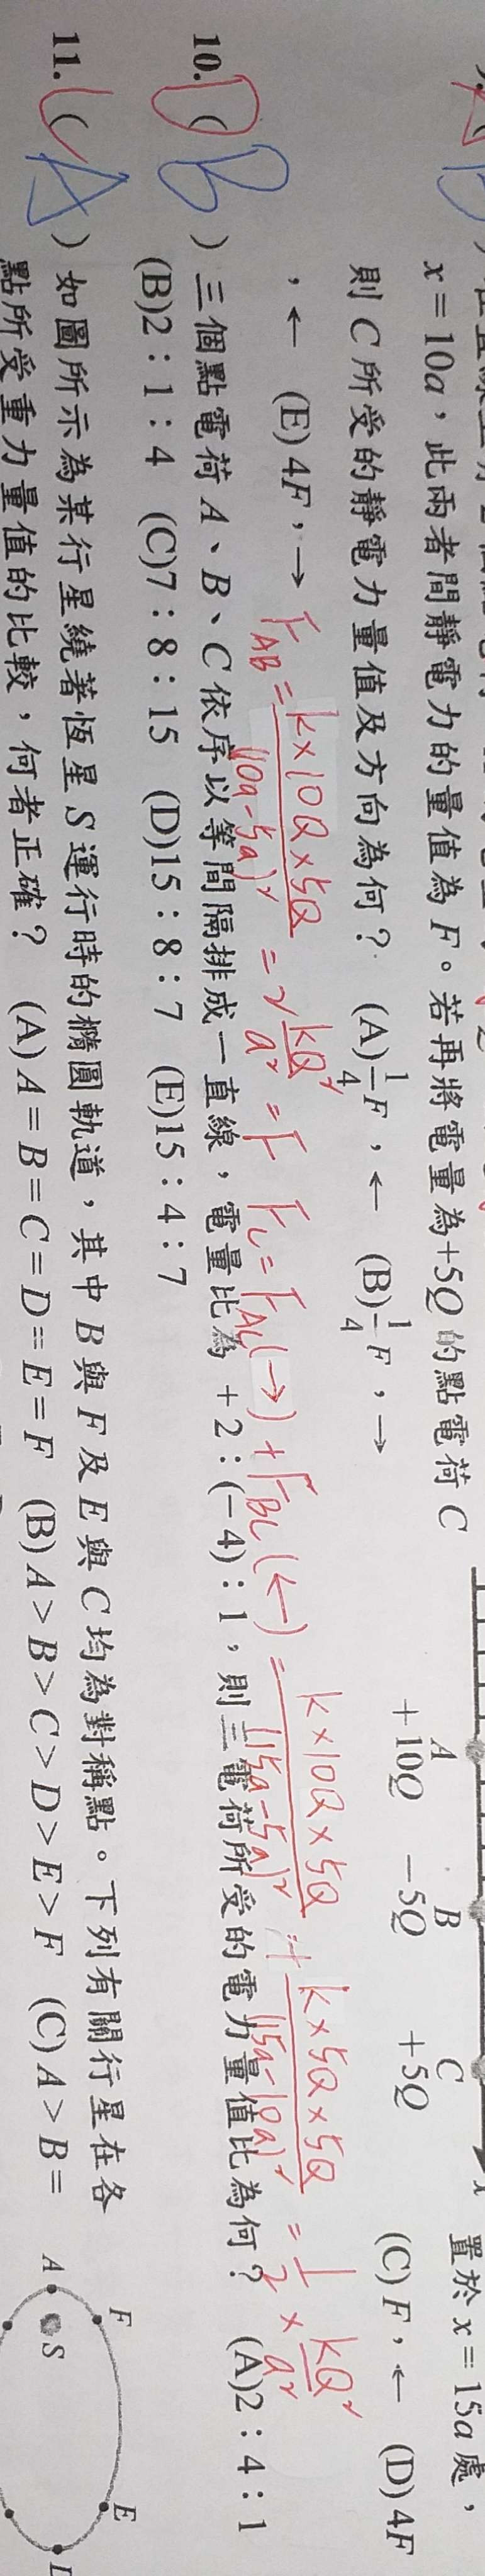 x = 10a，此兩者間靜電力的量值為 F。若再將電量為+5Q 的點電荷 C 置於 x = 15a 處，
則 C 所受的靜電力量值及方向為何？ (A) 1/4 F，← (B) 1/4 F，→ (C) F，← (D) 4F
，← (E) 4F，→
A B C
+10Q −5Q +5Q
F_AB = k×10Q×5Q/(10a−5a)² = 2 kQ²/a² = F F_C = F_AC(→) + F_BC(←) = k×10Q×5Q/(15a−5a)² + k×5Q×5Q/(15a−10a)² = 1/2 × kQ²/a²
10. ( B ) 三個點電荷 A、B、C 依序以等間隔排成一直線，電量比為 +2：(−4)：1，則三電荷所受的電力量值比為何？ (A)2：4：1
D
(B)2：1：4 (C)7：8：15 (D)15：8：7 (E)15：4：7
11. ( A ) 如圖所示為某行星繞著恆星 S 運行時的橢圓軌道，其中 B 與 F 及 E 與 C 均為對稱點。下列有關行星在各
C
點所受重力量值的比較，何者正確？ (A) A = B = C = D = E = F (B) A > B > C > D > E > F (C) A > B =
F E
A S